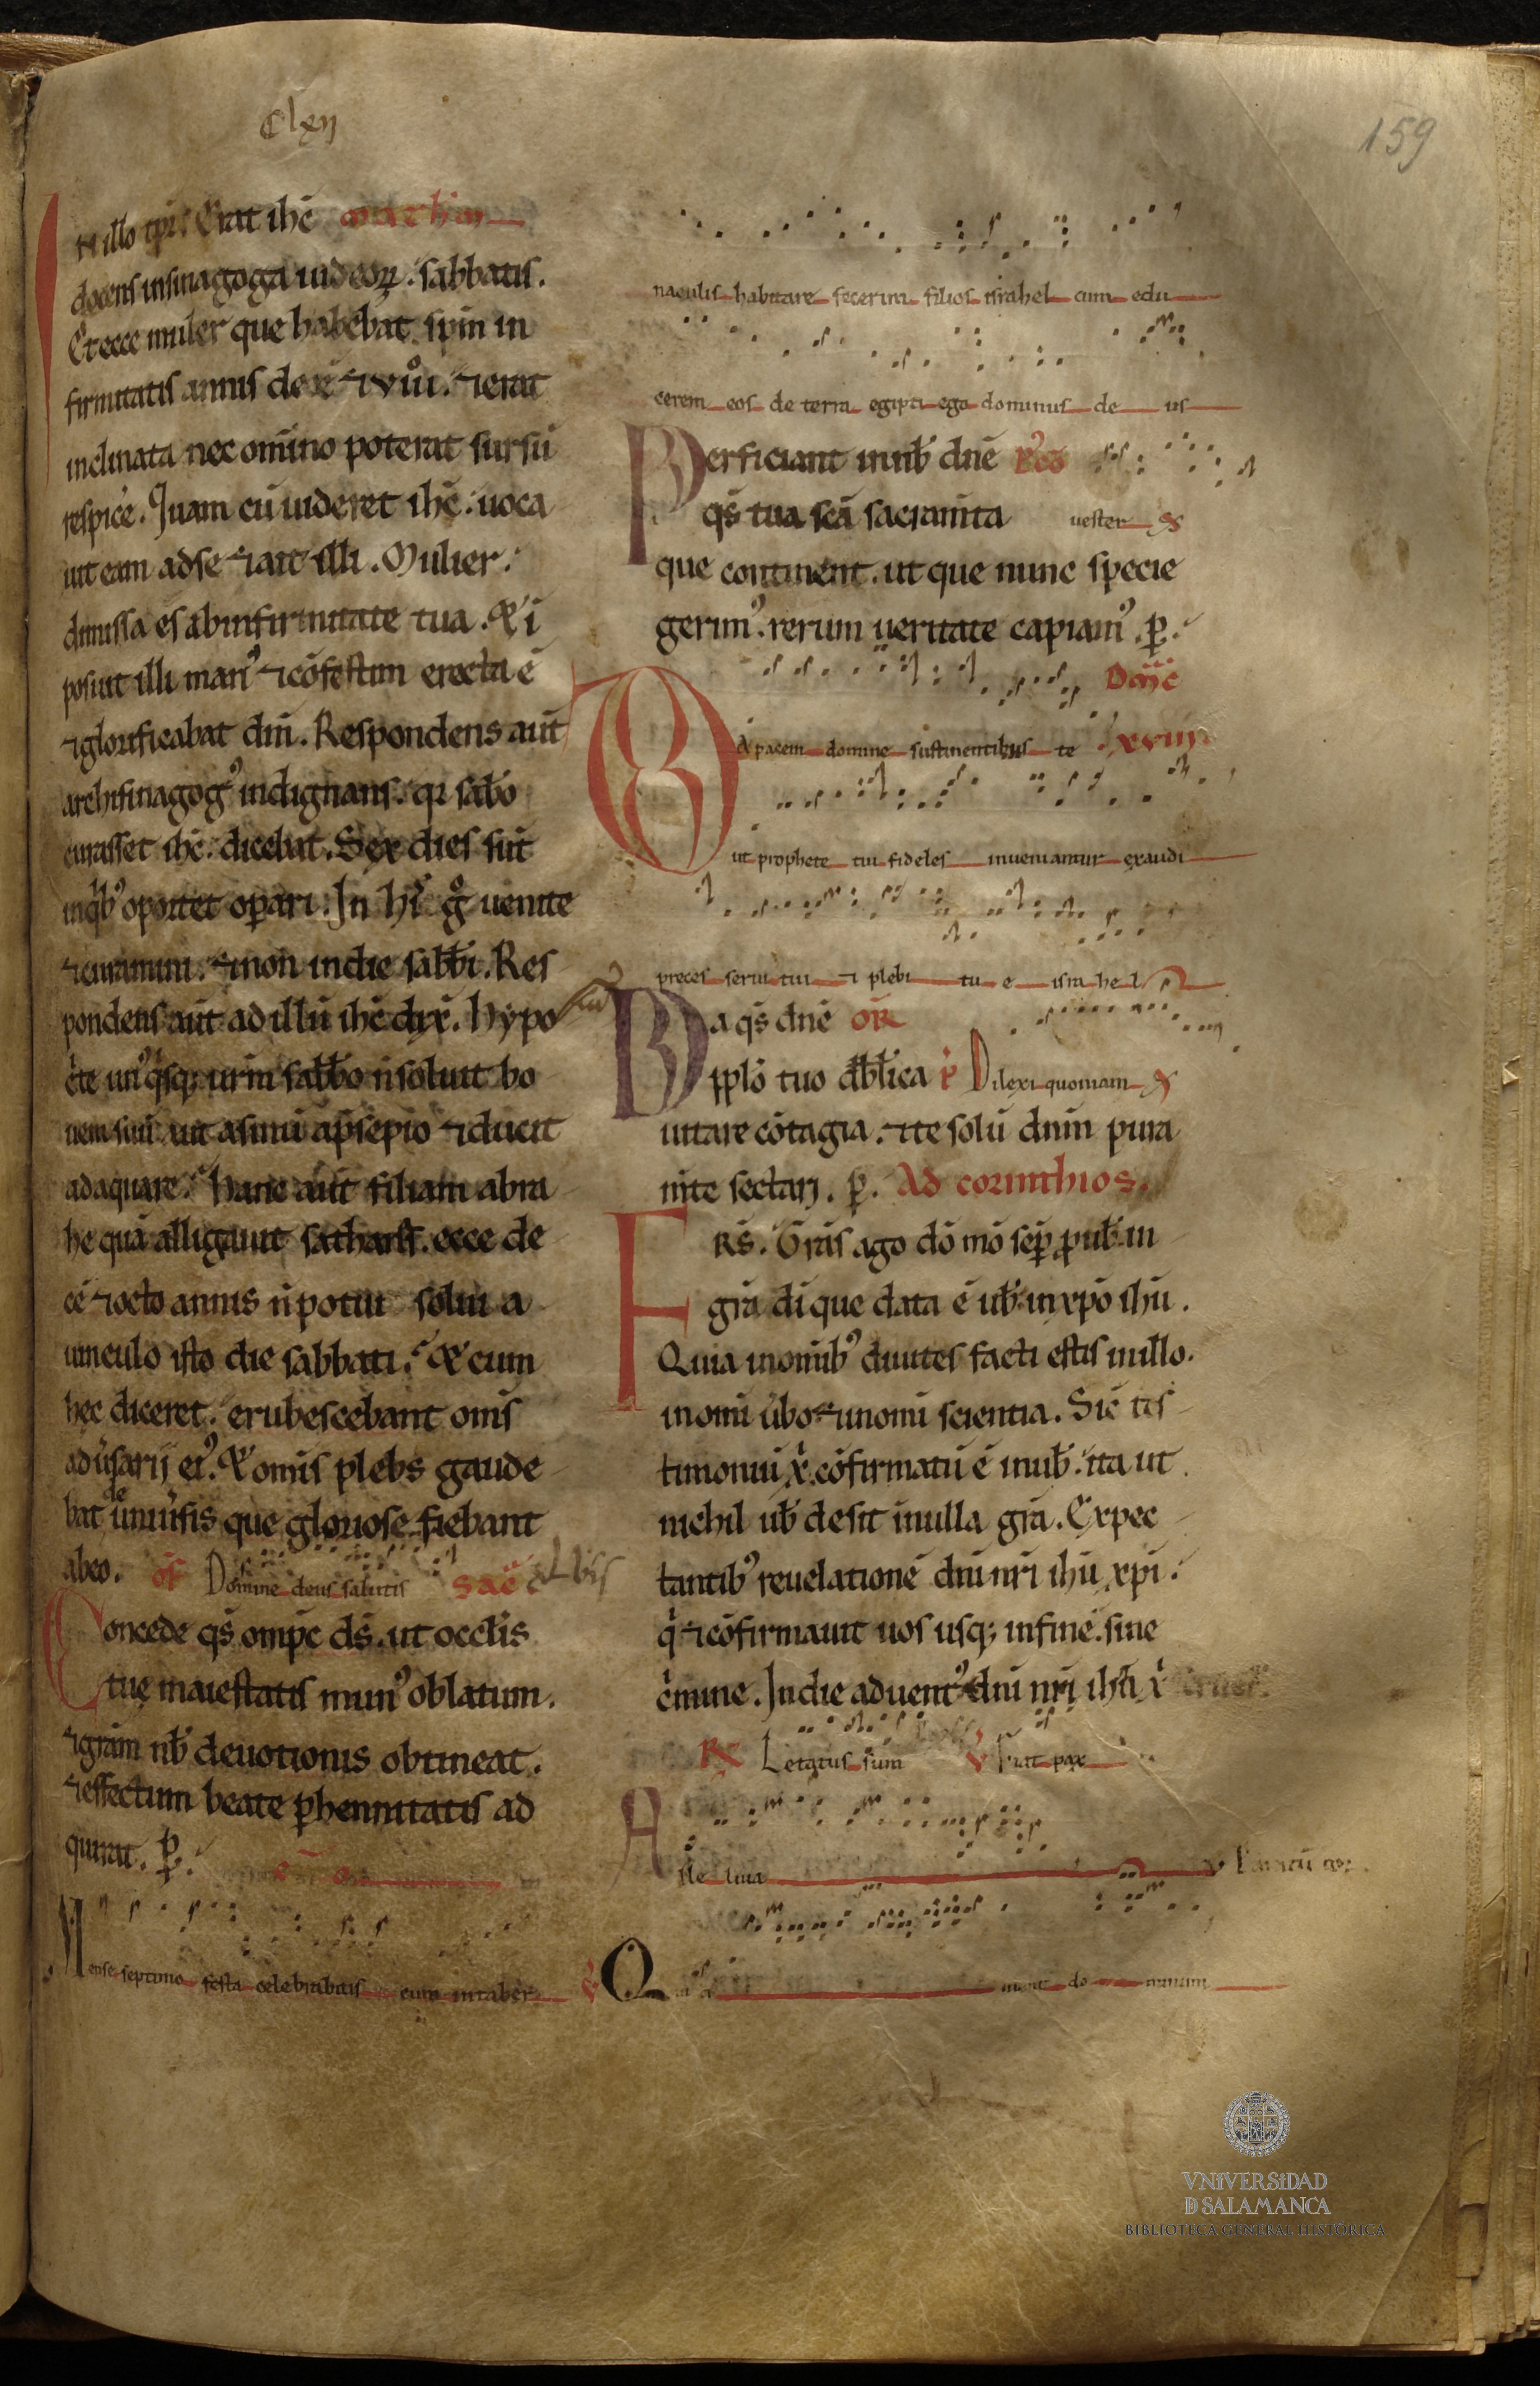 Clxij
159
IN illo tp̄r. Erat ihc̄
docens insinagoga iudeoꝝ. sabbatis.
Et ecce mulier que habebat sp̄m in
firmitatis annis decē ⁊ viii. ⁊ erat
inclinata nec om̄ino poterat sursū
respicē. Quam cū uideret ihc̄. uoca
uit eam adse ⁊ ait illi. Mulier.
dimissa es abinfirmitate tua. Et ī
posuit illi manꝰ ⁊ cōfestim erecta ē
⁊ glorificabat dm̄. Respondens aut̄
archisinagogꝰ indignans. qꝛ sabbo
curasset ihc̄. dicebat. Sex dies sūt
inqͥbꝰ oportet oꝑari. In hiſ gͦ uenite
⁊ curamini. ⁊ non indie sabbi. Res
pondens aut̄ ad illū ihc̄ dix̄. Hypo
cͥte unꝰqͥsqꝫ ur̄m sabbo n̄ soluit bo
uem suū aut asinū apsepio ⁊ ducit
adaquare. Hanc aut̄ filiam abra
he quā alligauit sathanas. ecce de
cē ⁊ octo annis n̄ potuit solui a
uinculo isto die sabbati. Et cum
hec diceret. erubescebant om̄s
adūsarij eiꝰ. Et om̄is plebs gaude
bat de uniūsis que gloriose fiebant
abeo. of Domine deus salutis sac̄
Concede qs̄ omp̄c ds̄. ut occl̄is
tuę maiestatis munꝰ oblatum.
⁊ grām nb̄ deuotionis obtineat.
⁊ effectum beate ꝑhennitatis ad
quirat. ꝑ.
Mense septimo festa celebrabitis cum intaber
naculis habitare fecerim filios israhel cum edu
cerem eos de terra egipti ego dominus de us
Perficiant innb̄ dn̄e
qs̄ tua sc̄a sacram̄ta uester
que continent. ut que nunc specie
gerimꝰ. rerum ueritate capiamꝰ. ꝑ.
Dn̄ic
DA pacem domine sustinentibus te xviij
ut prophete tui fideles inueniantur exaudi
preces serui tui ⁊ plebi tu e israhel
Da qs̄ dn̄e oR̄
pplō tuo diabl̄ica Dilexi quoniam
uitare cōtagia. ⁊ te solū dn̄m pura
m̄te sectari. ꝑ. Ad corinthios.
FRs̄. Grās ago dō mō seꝑ ꝓ uob̄ in
grā di que data ē ub̄ in xp̄o ihū.
Quia inomībꝰ diuites facti estis inillo.
inomi ūbo ⁊ inomi scientia. Sic̄ tes
timoniū xͥ cōfirmatū ē inub̄. ita ut
nichil ub̄ desit inulla grā. Expec
tantibꝰ reuelationē dn̄i nr̄i ihū xp̄i.
qͥ ⁊ cōfirmauit uos usqꝫ infinē. sine
cͥmine. In die aduentꝰ dn̄i nr̄i ihū xͥ
R Letatus sum V Fiat pax
Alle luia
Qui
VNIVERSIDAD
D SALAMANCA
BIBLIOTECA GENERAL HISTÓRICA